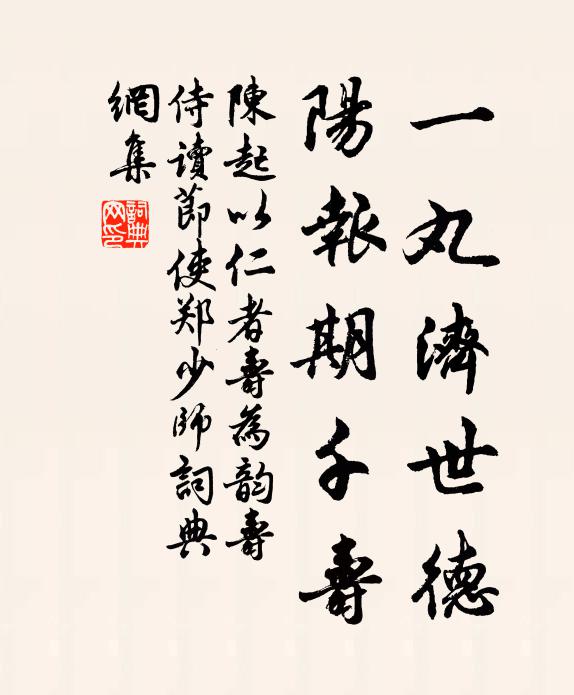 一丸濟世德
陽報期千壽
陳起以仁者壽為韵壽
侍讀節使郑少师詞典
網集
詞典
网印